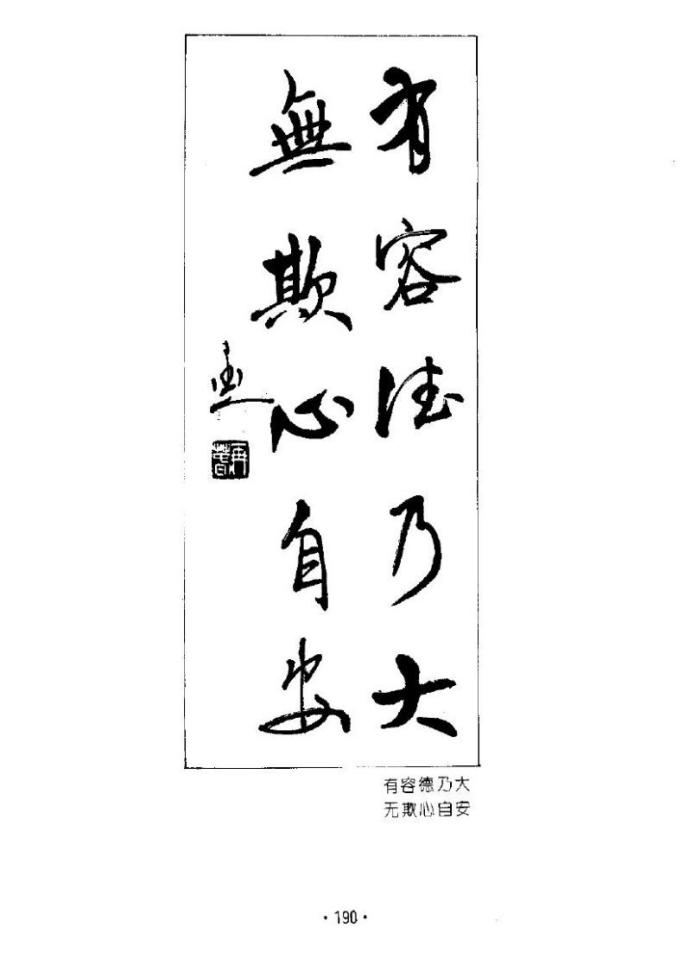 有容德乃大
無欺心自安
有容德乃大
无欺心自安
·190·